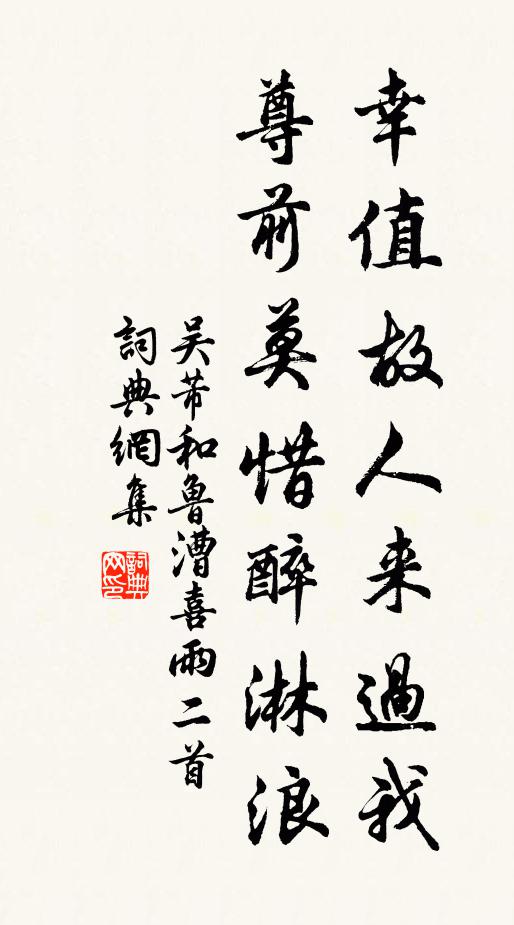 幸值故人来過我
尊前莫惜醉淋浪
吴芾和魯漕喜雨二首
詞典網集
詞典网印